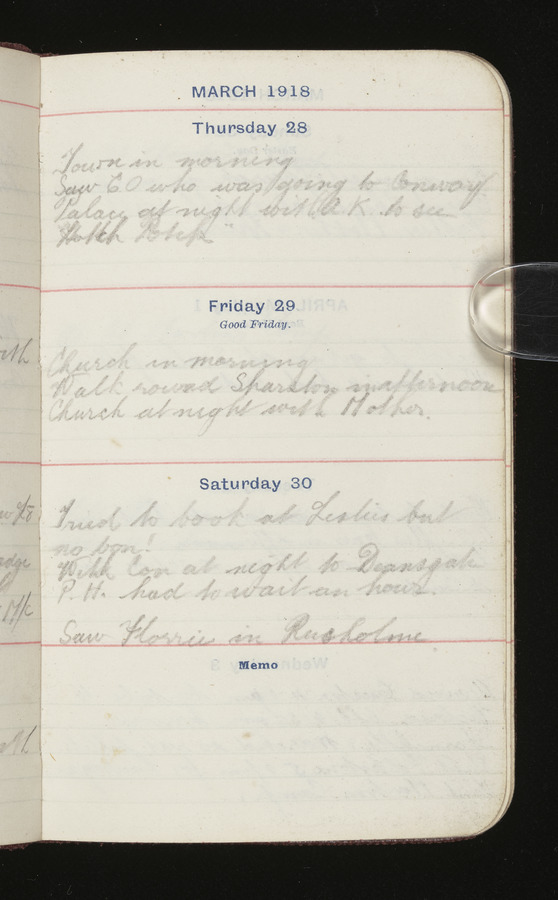 MARCH 1918
Thursday 28
Town in morning
Saw C.O who was going to Conway
Palace at night with A.K. to see
"Hotch Potch"
Friday 29
Good Friday.
Church in morning
Walk round Sharston in afternoon
Church at night with Mother.
Saturday 30
Tried to book at Leslies but
no bon!
With Con at night to Deansgate
P.H. had to wait an hour.
Saw Florrie in Rusholme
Memo